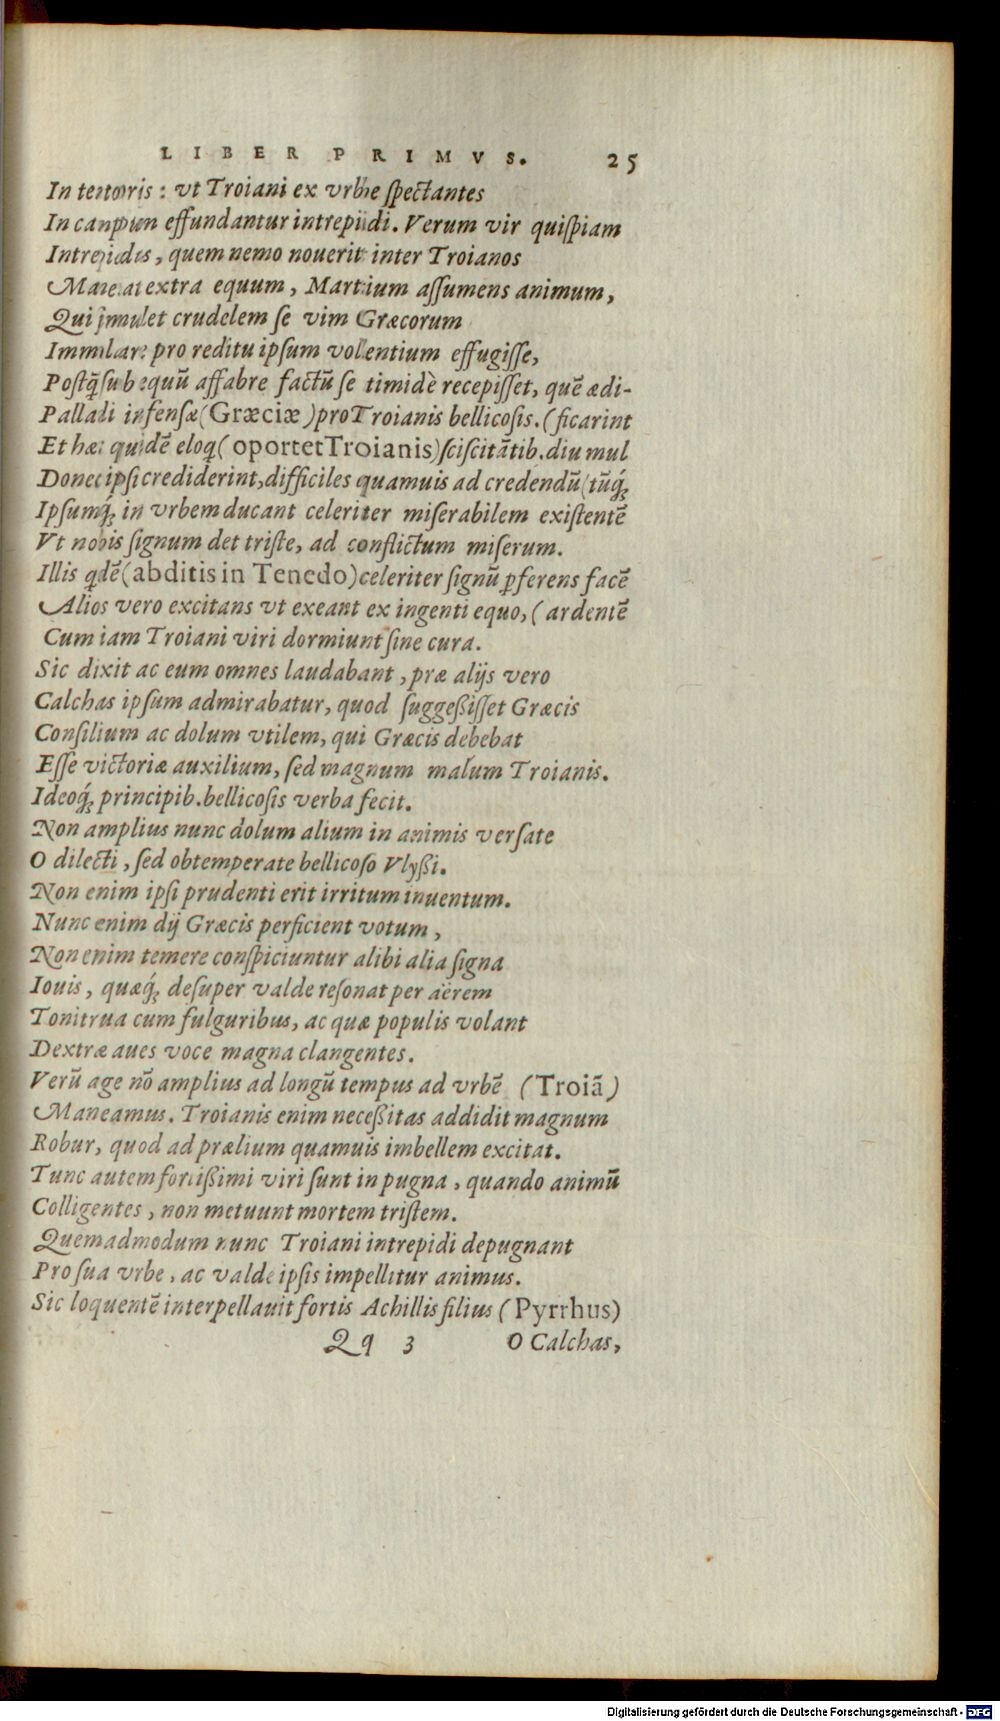 LIBER PRIMVS. 25
In tentoris : vt Troiani ex vrbe spectantes
In campum effundantur intrepidi. Verum vir quispiam
Intrepidus, quem nemo nouerit inter Troianos
Maneat extra equum, Martium assumens animum,
Qui simulet crudelem se vim Græcorum
Immolare pro reditu ipsum volentium effugisse,
Postq̃ sub equũ affabre factũ se timidè recepisset, quẽ ædi-
Palladi infensæ (Græciæ) pro Troianis bellicosis. (ficarint
Et hæc quidẽ eloq̃ (oportet Troianis) sciscitãtib. diu mul
Donec ipsi crediderint, difficiles quamuis ad credendũ (tũq́;
Ipsumq́; in vrbem ducant celeriter miserabilem existentẽ
Vt nobis signum det triste, ad conflictum miserum.
Illis q̃dẽ (abditis in Tenedo) celeriter signũ ꝓferens facẽ
Alios vero excitans vt exeant ex ingenti equo, (ardentẽ
Cum iam Troiani viri dormiunt sine cura.
Sic dixit ac eum omnes laudabant, præ alijs vero
Calchas ipsum admirabatur, quod suggeßisset Græcis
Consilium ac dolum vtilem, qui Græcis debebat
Esse victoriæ auxilium, sed magnum malum Troianis.
Ideoq́; principib. bellicosis verba fecit.
Non amplius nunc dolum alium in animis versate
O dilecti, sed obtemperate bellicoso Vlyßi.
Non enim ipsi prudenti erit irritum inuentum.
Nunc enim dij Græcis perficient votum,
Non enim temere conspiciuntur alibi alia signa
Iouis, quæq́; desuper valde resonat per aërem
Tonitrua cum fulguribus, ac quæ populis volant
Dextræ aues voce magna clangentes.
Verũ age nõ amplius ad longũ tempus ad vrbẽ (Troiã)
Maneamus. Troianis enim neceßitas addidit magnum
Robur, quod ad prælium quamuis imbellem excitat.
Tunc autem fortißimi viri sunt in pugna, quando animũ
Colligentes, non metuunt mortem tristem.
Quemadmodum nunc Troiani intrepidi depugnant
Pro sua vrbe, ac valde ipsis impellitur animus.
Sic loquentẽ interpellauit fortis Achillis filius (Pyrrhus)
Qq 3 O Calchas,
Digitalisierung gefördert durch die Deutsche Forschungsgemeinschaft - DFG